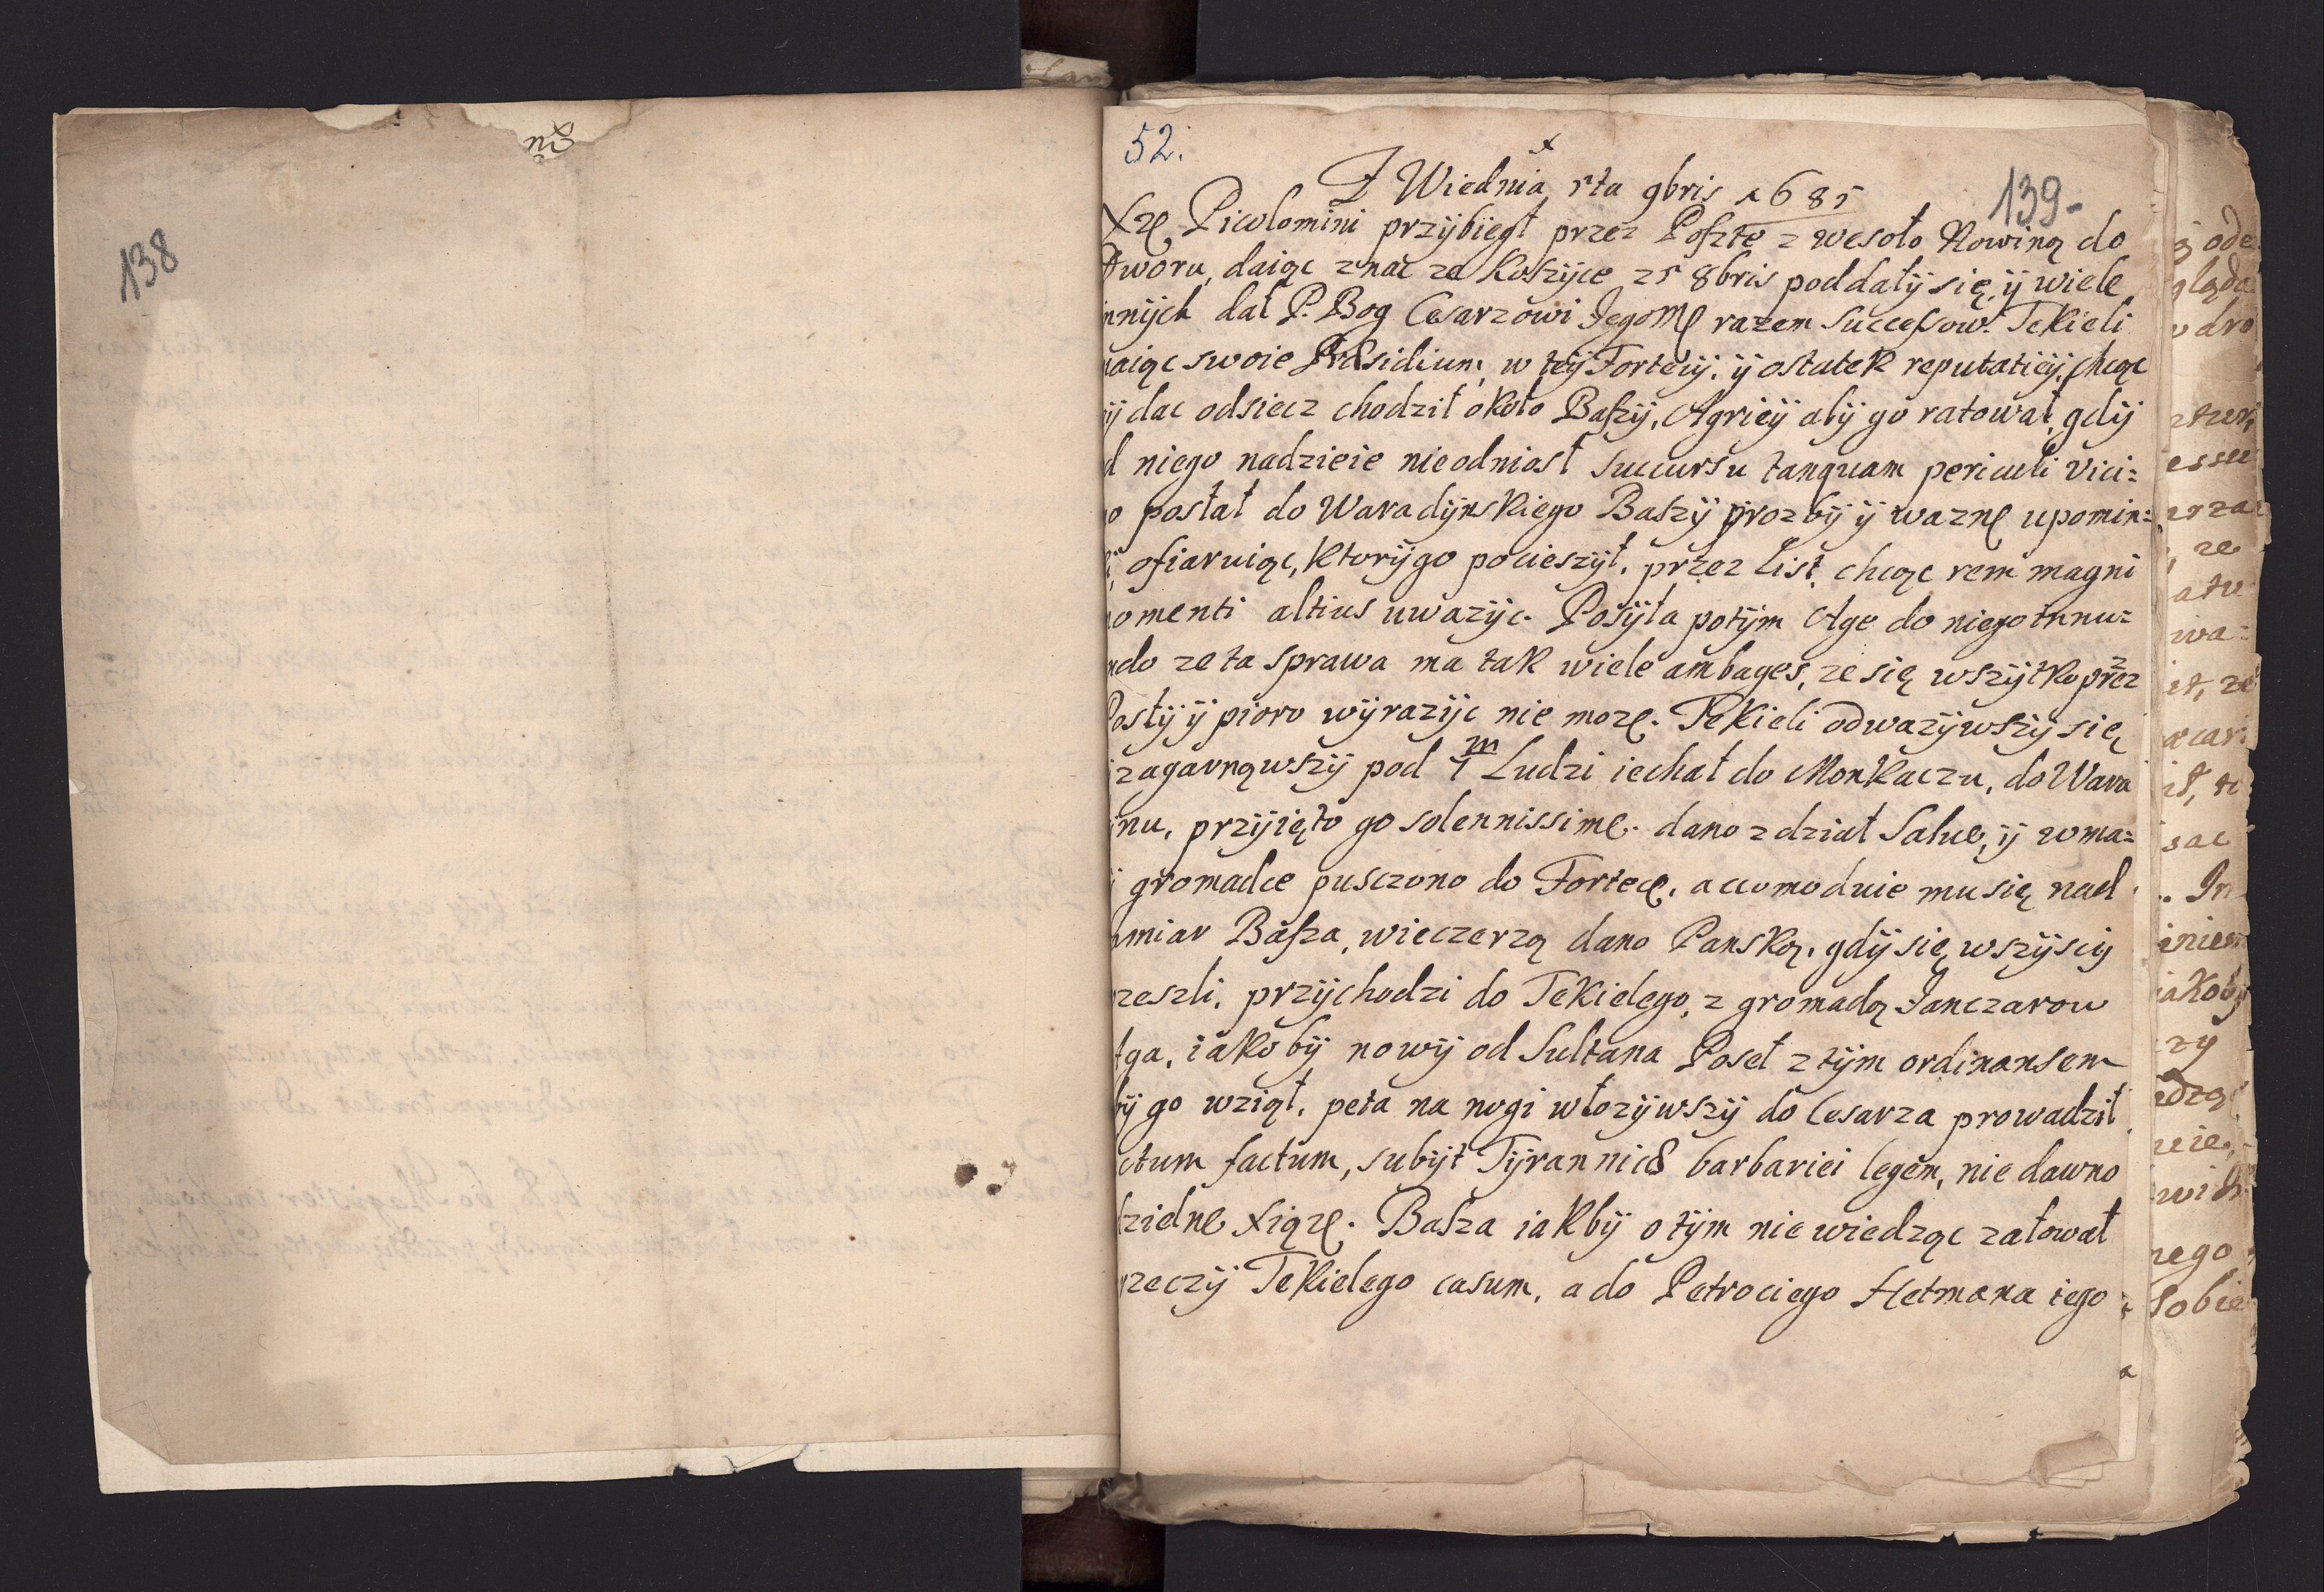 138
52.
139-
Z Wiednia 5ta 9bris 1685
Xżę Picolomini przÿbiegł przez Posztę z wesoło Nowiną do
Dworu, daiąc znac ze Koszÿce 25 8bris poddałÿ się, ÿ wiele
nnÿch dał P. Bog Cesarzowi Jegomę razem Successow. Tekieli
maiąc swoie Præsidium w teÿ Forteÿ, ÿ ostatek reputatieÿ, chcąc
ÿ dac odsiecz chodził około Baszÿ, Agrieÿ abÿ go ratował, gdÿ
d niego nadzieie nieodniosł succursu tanquam periculi vici=
o posłał do Waradÿnskiego Baszÿ prozbÿ ÿ wazne upomin=
i, ofiaruiąc, Ktorÿ go pocieszÿł, przez List, chcąc rem magni
momenti altius uwazÿc. Posÿła potÿm Age do niego innu=
ndo ze ta sprawa ma tak wiele ambages, ze się wszÿtko przez
Postÿ ÿ pioro wÿrazÿc nie moze. Tekieli odwazÿwszÿ się
zagarnąwszÿ pod 1 m Ludzi iechał do Monkaczu, do Wara
ÿnu, przÿięto go solennissime. dano z dział Salue, ÿ w ma=
ÿ gromadce pusczono do Fortece, accomoduie mu się nad
zmiar Basza, wieczerzą dano Panską, gdÿ się wszÿscÿ
rzeszli, przÿchodzi do Tekielego, z gromadą Janczarow
Aga, iakobÿ nowÿ od Sultana Poseł z tÿm ordinansem
bÿ go wziął, pęta na nogi włozÿwszÿ do Cesarza prowadził
ctum factum, subÿt Tÿrannicæ barbariei legem, nie dawno
dzielne xiąze. Basza iakbÿ o tÿm nie wiedząc załował
rzeczÿ Tekielego casum, a do Petrociego Hetmana iego